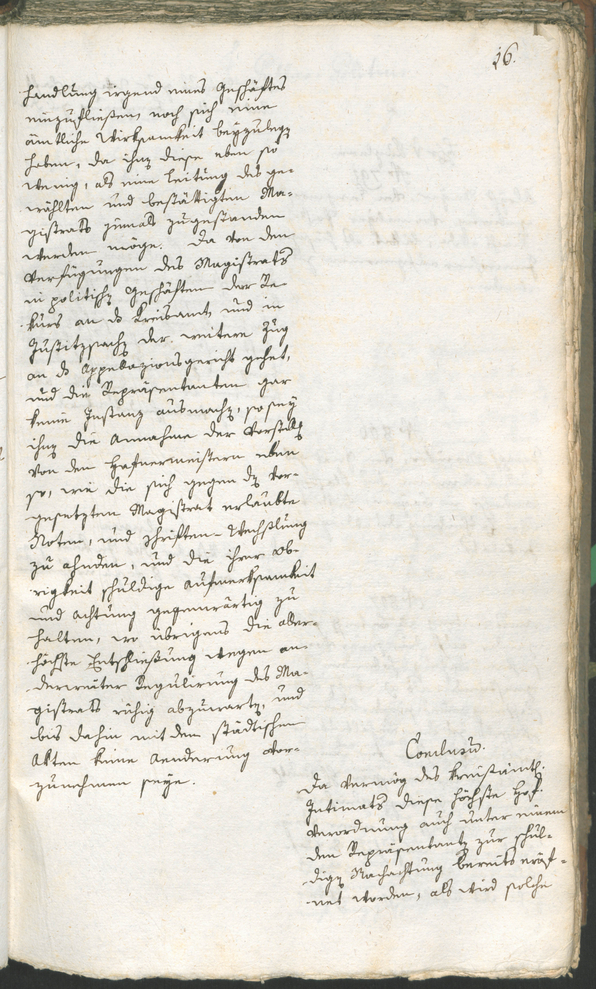 16.
handlung irgend eines Geschäftes
einzufließen, noch sich eine
ämtliche Wirksamkeit beyzulegen
haben, da ihnen diese eben so
wenig, als eine Leitung des ge-
wählten und bestättigten Ma-
gistrats jemals zugestanden
werden möge. Da von den
Verfügungen des Magistrats
in politischen Geschäften der Re-
kurs an das Kreisamt, und in
Justizsachen der weitere Zug
an das Appellazionsgericht gehet,
und die Repräsentanten gar
keine Instanz ausmachen, so sey
ihnen die Annahme der Vorstellung
von den Hafnermeistern eben
so, wie die sich gegen den vor-
gesetzten Magistrat erlaubte
Noten, und Schriften-Wechslung
zu ahnden, und die ihrer Ob-
rigkeit schuldige Aufmerksamkeit
und Achtung gegenwärtig zu
halten, wo übrigens die aller-
höchste Entschließung wegen an-
derweiter Regulirung des Ma-
gistrats ruhig abzuwarten, und
bis dahin mit dem städtischen
Akten keine Aenderung vor-
zunehmen seye.
Conclusum.
Da vermög des kreisämtl:
Intimats diese höchste Hof-
verordnung auch unter einem
den Repräsentanten zur schul-
digen Nachachtung bereits eröf-
net worden, als wird solche